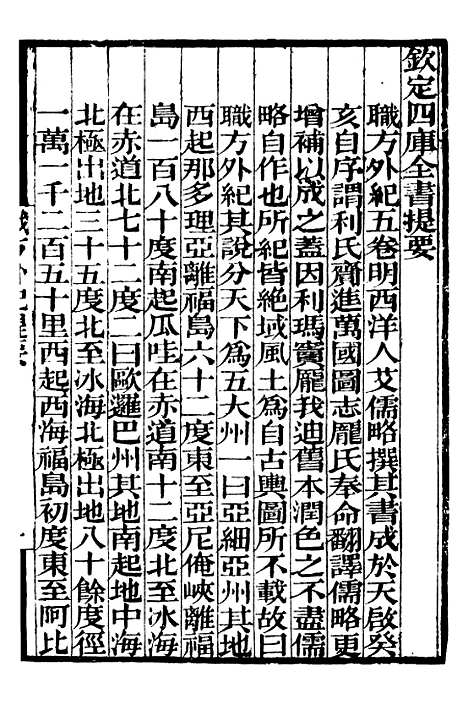 欽定四庫全書提要
職方外紀五卷明西洋人艾儒略撰其書成於天啟癸
亥自序謂利氏齎進萬國圖志龐氏奉命翻譯儒略更
增補以成之蓋因利瑪竇龐我迪舊本潤色之不盡儒
略自作也所紀皆絶域風土為自古輿圖所不載故曰
職方外紀其說分天下為五大州一曰亞細亞州其地
西起那多理亞離福島六十二度東至亞尼俺峽離福
島一百八十度南起瓜哇在赤道南十二度北至冰海
在赤道北七十二度二曰歐邏巴州其地南起地中海
北極出地三十五度北至冰海北極出地八十餘度徑
一萬一千二百五十里西起西海福島初度東至阿比
職方外紀提要
一